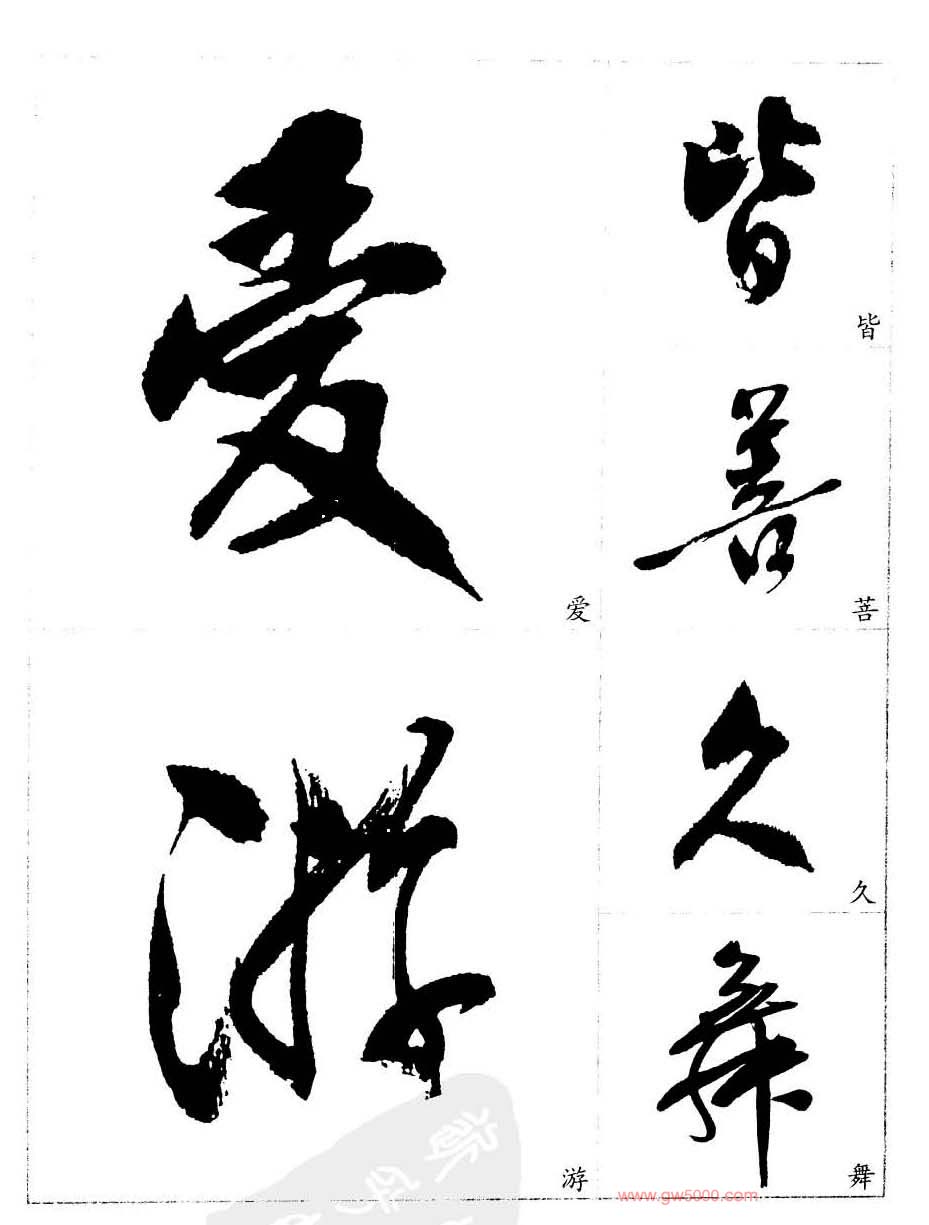 皆
皆
善
菩
久
久
舞
舞
愛
爱
游
游
www.gw5000.com